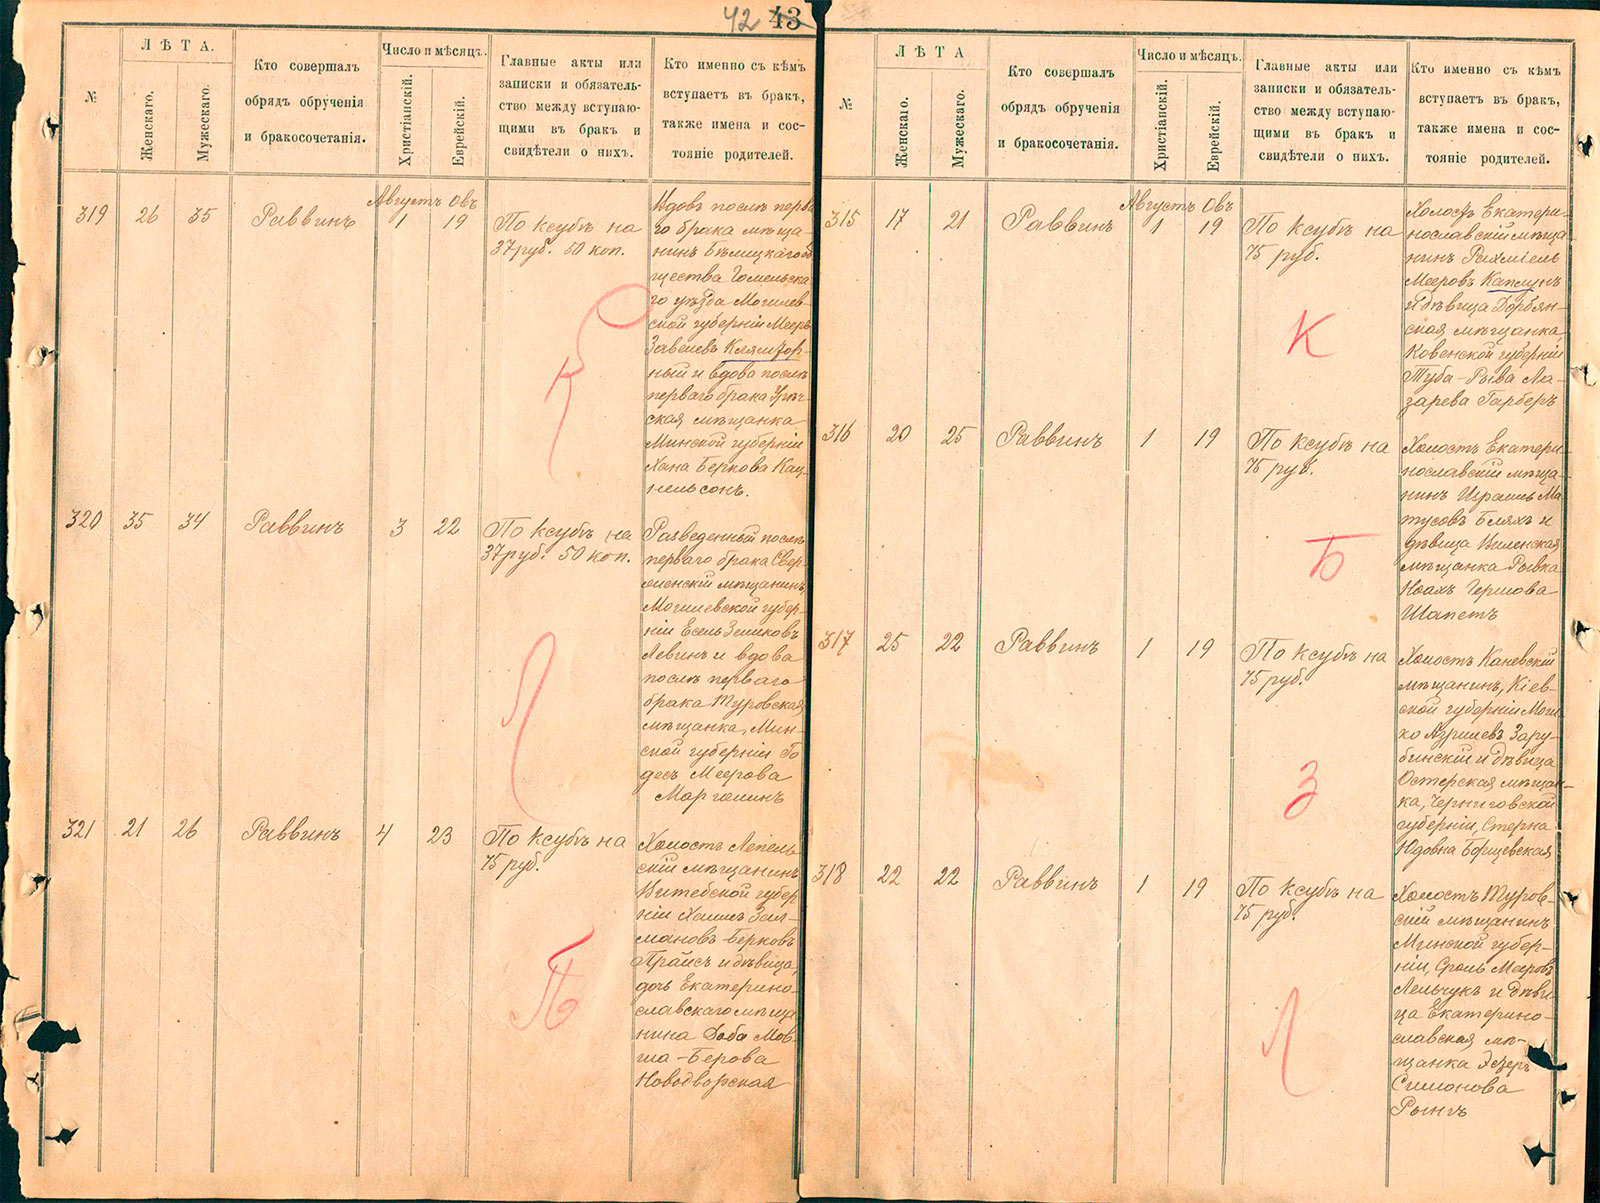 42 43
№
ЛѢТА.
Женскаго.
Мужескаго.
Кто совершалъ
обрядъ обрученія
и бракосочетанія.
Число и мѣсяцъ.
Христіанскій.
Еврейскій.
Главные акты или
записки и обязатель-
ство между вступаю-
щими въ бракъ и
свидѣтели о нихъ.
Кто именно съ кѣмъ
вступаетъ въ бракъ,
также имена и сос-
тояніе родителей.
Августъ Овъ
319 26 35 Раввинъ 1 19
По ксубѣ на
37 руб. 50 коп.
Вдовъ послѣ перва
го брака мѣща-
нинъ Бѣлицкаго об
щества Гомельска
го уѣзда Могилев-
ской губерніи Мееръ
Завелевъ Клямзор-
ный и вдова послѣ
перваго брака
ская мѣщанка
Минской губерніи
Хана Беркова Кац-
нельсонъ.
К
320 35 34 Раввинъ 3 22
По ксубѣ на
37 руб. 50 коп.
Разведенный послѣ
перваго брака Свер-
женскій мѣщанинъ,
Могилевской губер-
ніи Есель Зеликовъ
Левинъ и вдова
послѣ перваго
брака Туровская
мѣщанка, Мин-
ской губерніи Го
десъ Меерова
Марголинъ
Л
321 21 26 Раввинъ 4 23
По ксубѣ на
75 руб.
Холостъ Лепель-
скій мѣщанинъ
Витебской губер
ніи Хаимъ Зал-
мановъ-Берковъ
Прайсъ и дѣвица,
дочь Екатерино-
славскаго мѣща
нина Доба Мов-
ша-Берова
Новодворская
П
№
ЛѢТА
Женскаго.
Мужескаго.
Кто совершалъ
обрядъ обрученія
и бракосочетанія.
Число и мѣсяцъ.
Христіанскій.
Еврейскій.
Главные акты или
записки и обязатель-
ство между вступаю-
щими въ бракъ и
свидѣтели о нихъ.
Кто именно съ кѣмъ
вступаетъ въ бракъ,
также имена и сос-
тояніе родителей.
Августъ Овъ
315 17 21 Раввинъ 1 19
По ксубѣ на
75 руб.
Холостъ Екатери-
нославскій мѣща
нинъ Рахміель
Мееровъ Каплунъ
и дѣвица Дорбян-
ская мѣщанка,
Ковенской губерніи
Туба-Рыва Ла-
зарева Гарберъ
К
316 20 25 Раввинъ 1 19
По ксубѣ на
75 руб.
Холостъ Екатери
нославскій мѣща-
нинъ Израиль Ма
тусовъ Бляхъ и
дѣвица Виленская
мѣщанка Рывка
Ноахъ Гершова
Шапетъ
Б
317 25 22 Раввинъ 1 19
По ксубѣ на
75 руб.
Холостъ Каневскій
мѣщанинъ, Кіев-
ской губерніи Мош-
ко Азрилевъ Зару-
бинскій и дѣвица
Остерская мѣщан-
ка, Черниговской
губерніи, Стерна
Юдовна Борщевская
З
318 22 22 Раввинъ 1 19
По ксубѣ на
75 руб.
Холостъ Туров-
скій мѣщанинъ
Минской губер-
ніи, Сроль Мееровъ
Лельчукъ и дѣви-
ца Екатерино-
славская мѣ-
щанка Эстеръ
Симонова
Рынгъ
Л